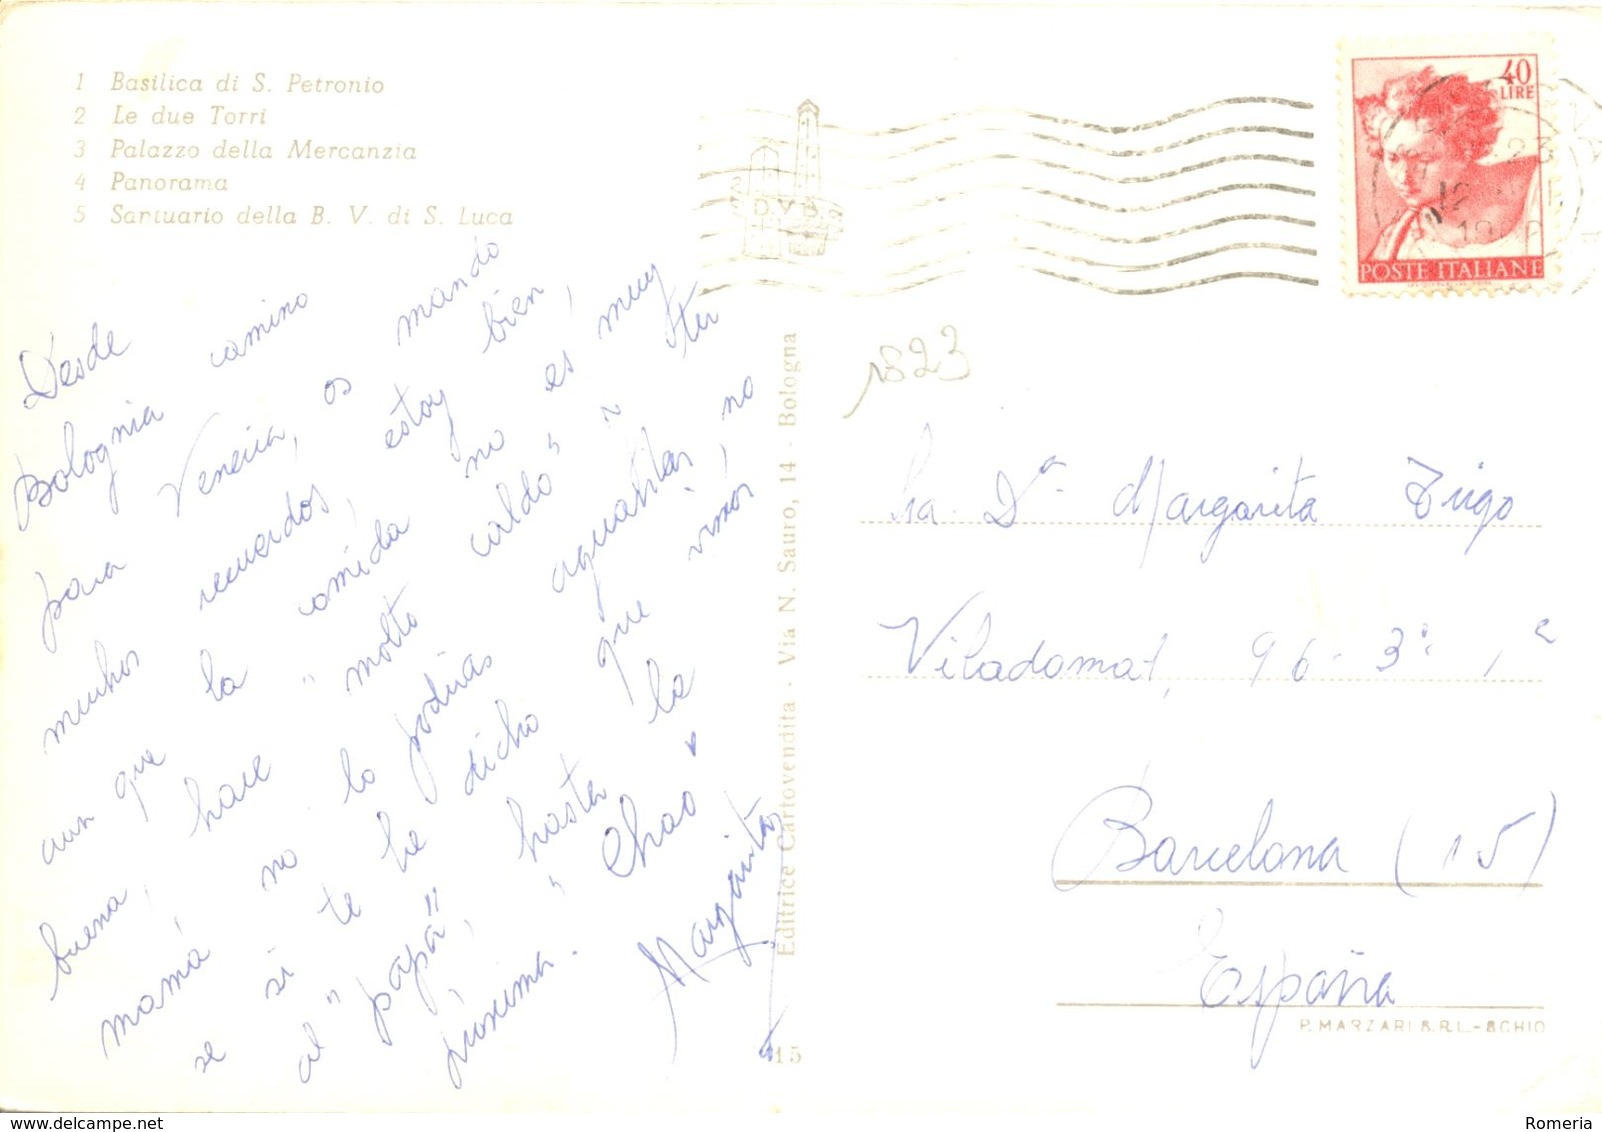 1 Basilica di S. Petronio
2 Le due Torri
3 Palazzo della Mercanzia
4 Panorama
5 Santuario della B. V. di S. Luca
40
LIRE
POSTE ITALIANE
D.V.B.
1823
Desde camino
Bolognia mando
para Venecia, os bien,
muchos recuerdos, estoy es muy
aun que la comida no ter
buena, hace "molto caldo" "
mamá, no lo podrias aguantar, no
se si te he dicho que vimos
al "papa", hasta la
próxima. "Chao"
Margarita
Editrice Cartovendita - Via N. Sauro, 14 - Bologna
15
La Dª Margarita Trigo
Viladomat, 96 - 3º 1ª
Barcelona (15)
España
P. MARZARI S.R.L. - SCHIO
Romeria